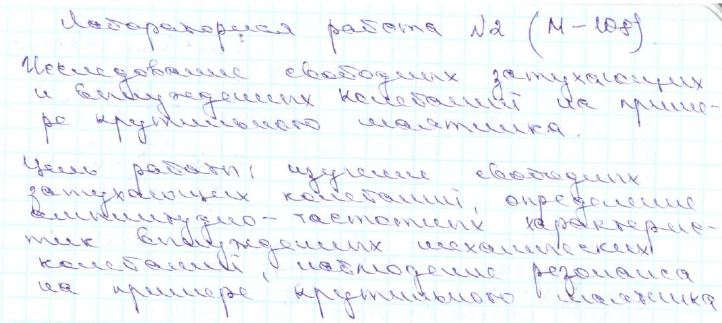 Лабораторная работа №2 (М-108)
Исследование свободных затухающих
и вынужденных колебаний на приме-
ре крутильного маятника.
Цель работы: изучение свободных
затухающих колебаний, определение
амплитудно-частотных характерис-
тик вынужденных механических
колебаний, наблюдение резонанса
на примере крутильного маятника